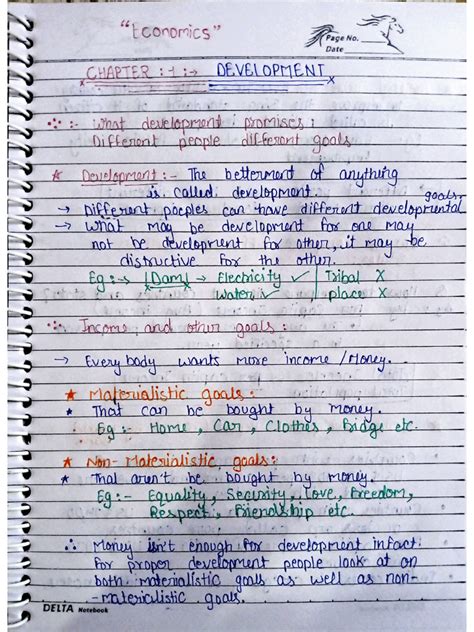 "Economics"
Page No.
Date
CHAPTER : 1 :→ DEVELOPMENT
∴ :- What development promises :
Different people different goals
★ Development :- The betterment of anything
is called development.
→ Different poeples can have different developmental goals.
→ What may be development for one may
not be development for other, it may be
distructive for the other.
Eg :→ |Dam| → Electricity ✓ | Tribal X
Water ✓ | place X
∴ Income and other goals :
→ Everybody wants more income / Money.
★ Materialistic goals :
★ That can be bought by money.
Eg :- Home, Car, Clothes, Bridge etc.
★ Non-Materialistic goals :
★ That aren't be bought by money.
Eg :- Equality, Security, Love, Freedom,
Respect, Friendship etc.
∴ Money isn't enough for development infact
for proper development people look at on
both materialistic goals as well as non-
-materialistic goals.
DELTA Notebook